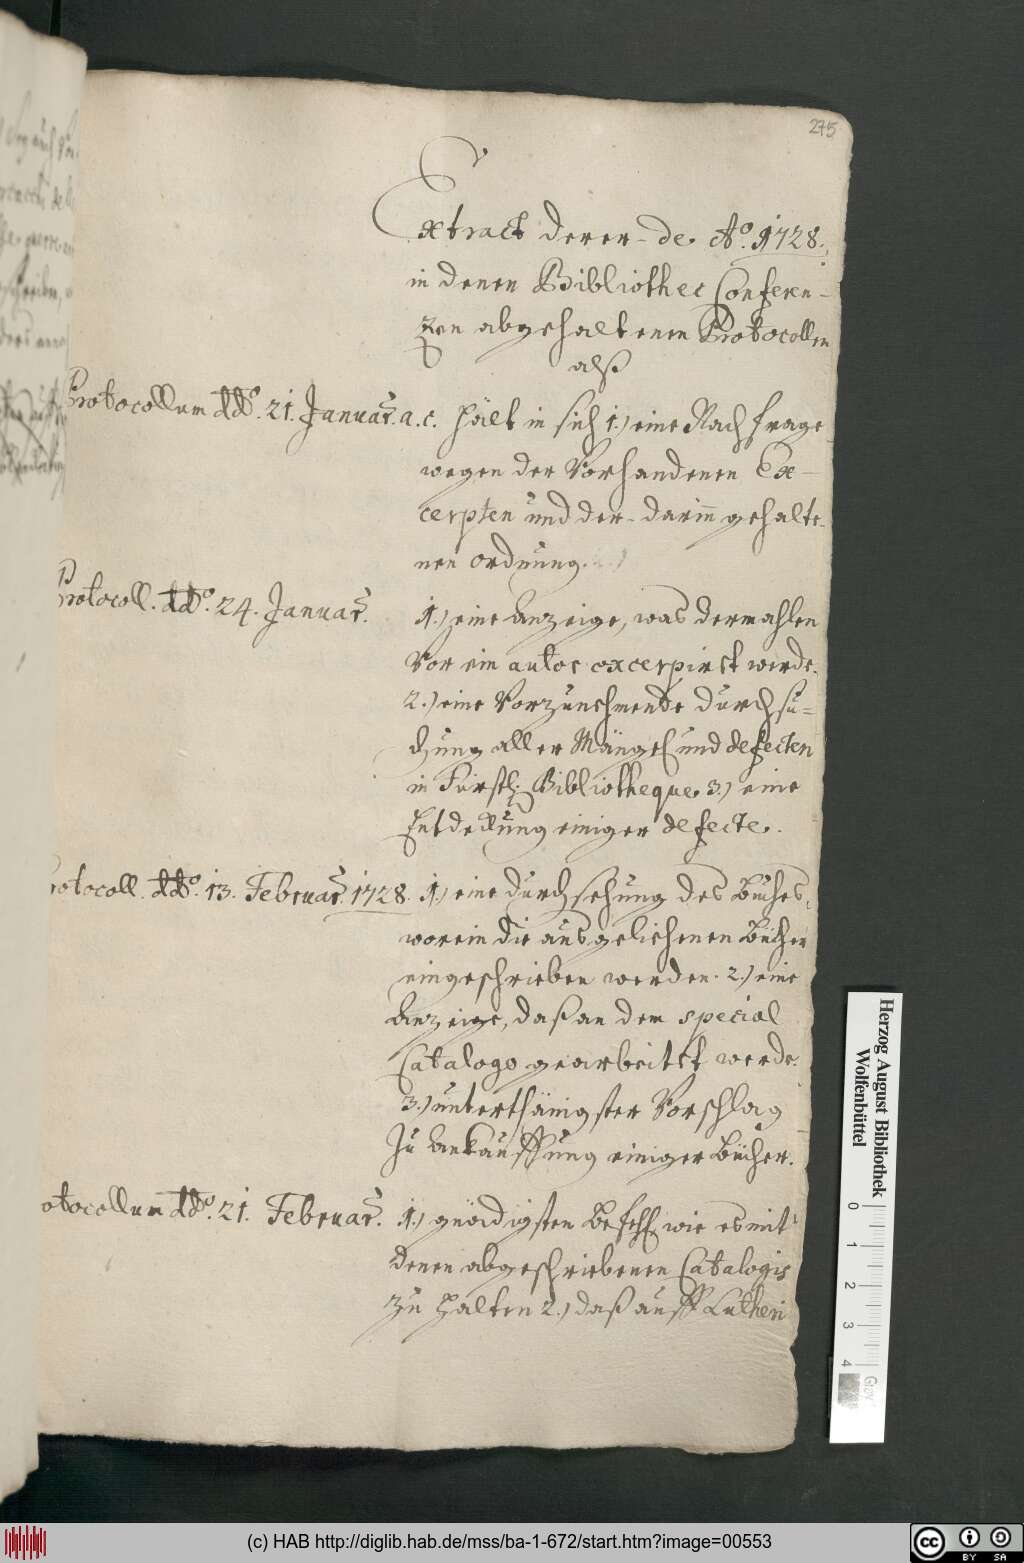 275
Extract derer de Aō. 1728.
in denen Bibliothec Conferen-
zen abgehaltenen Protocollen
alß
Protocollum ddō. 21. Januar. a. c. hält in sich 1.) eine Nachfrage
wegen der Vorhandenen Ex-
cerpten und der darinn gehalte-
nen ordnung.
Protocoll. ddō. 24. Januar. 1.) eine Anzeige, was dermahlen
Vor ein autor excerpirt werde.
2.) eine Vorzunehmende durchsu-
chung aller Mängel und defecten
in Fürstl. Bibliotheque 3.) eine
Entdeckung einiger defecte.
rotocoll. ddō. 13. Februar. 1728. 1.) eine durchsehung des Buches,
worein die ausgeliehenen Bücher
eingeschrieben werden. 2.) eine
Anzeige, daß an dem special
Catalogo gearbeitet werde.
3.) unterthänigster Vorschlag
zu Ankauffung einiger Bücher.
otocollum ddō. 21. Februar. 1.) gnädigsten Befehl, wie es mit
denen abgeschriebenen Catalogis
zu halten 2.) daß auff Lutheri
Herzog August Bibliothek
Wolfenbüttel
0 1 2 3 4
(c) HAB http://diglib.hab.de/mss/ba-1-672/start.htm?image=00553
cc BY SA